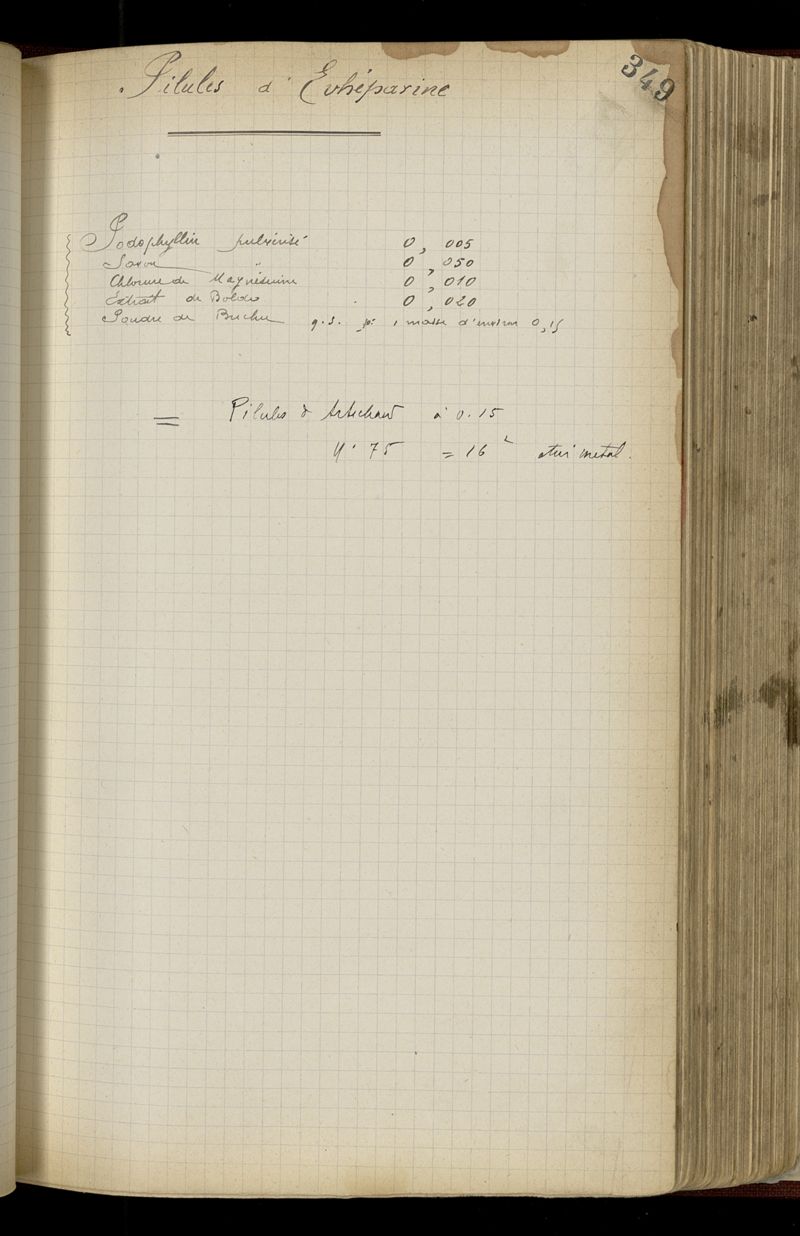 349
Pilules d'Euhéparine
Podophyllin pulvérisé 0,005
Savon " 0,050
Chlorure de Magnésium 0,010
Extrait de Boldo 0,020
Poudre de Buchu q.s. pr 1 masse d'environ 0,15
= Pilules d'Artichaut à 0.15
75 = 16 étui métal.